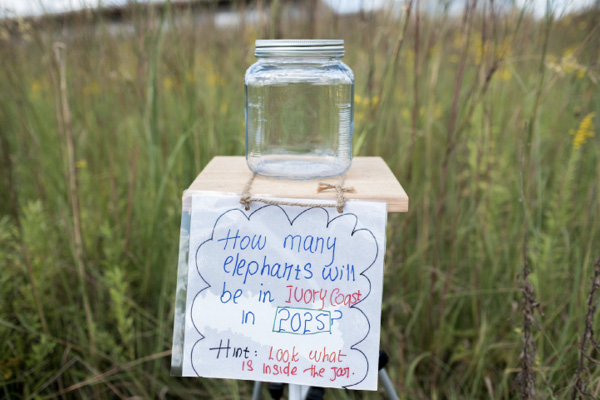 How many
elephants will
be in Ivory Coast
in 2025?
Hint: Look what
is inside the jar.